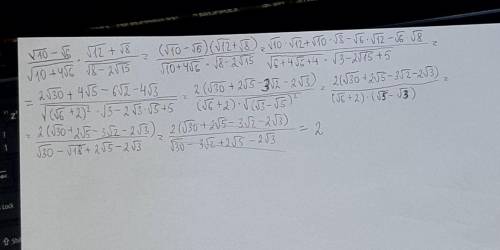 (√10 − √6)/√(10 + 4√6) · (√12 + √8)/√(8 − 2√15) = ((√10 − √6)(√12 + √8))/(√(10 + 4√6) · √(8 − 2√15)) = (√10 · √12 + √10 · √8 − √6 · √12 − √6 · √8)/(√(6 + 4√6 + 4) · √(3 − 2√15 + 5)) =
= (2√30 + 4√5 − 6√2 − 4√3)/(√(√6 + 2)² · √(3 − 2·√3·√5 + 5)) = (2(√30 + 2√5 − 3√2 − 2√3))/((√6 + 2) · √(√3 − √5)²) = (2(√30 + 2√5 − 3√2 − 2√3))/((√6 + 2) · (√5 − √3)) =
= (2(√30 + 2√5 − 3√2 − 2√3))/(√30 − √18 + 2√5 − 2√3) = (2(√30 + 2√5 − 3√2 − 2√3))/(√30 − 3√2 + 2√5 − 2√3) = 2
Shi